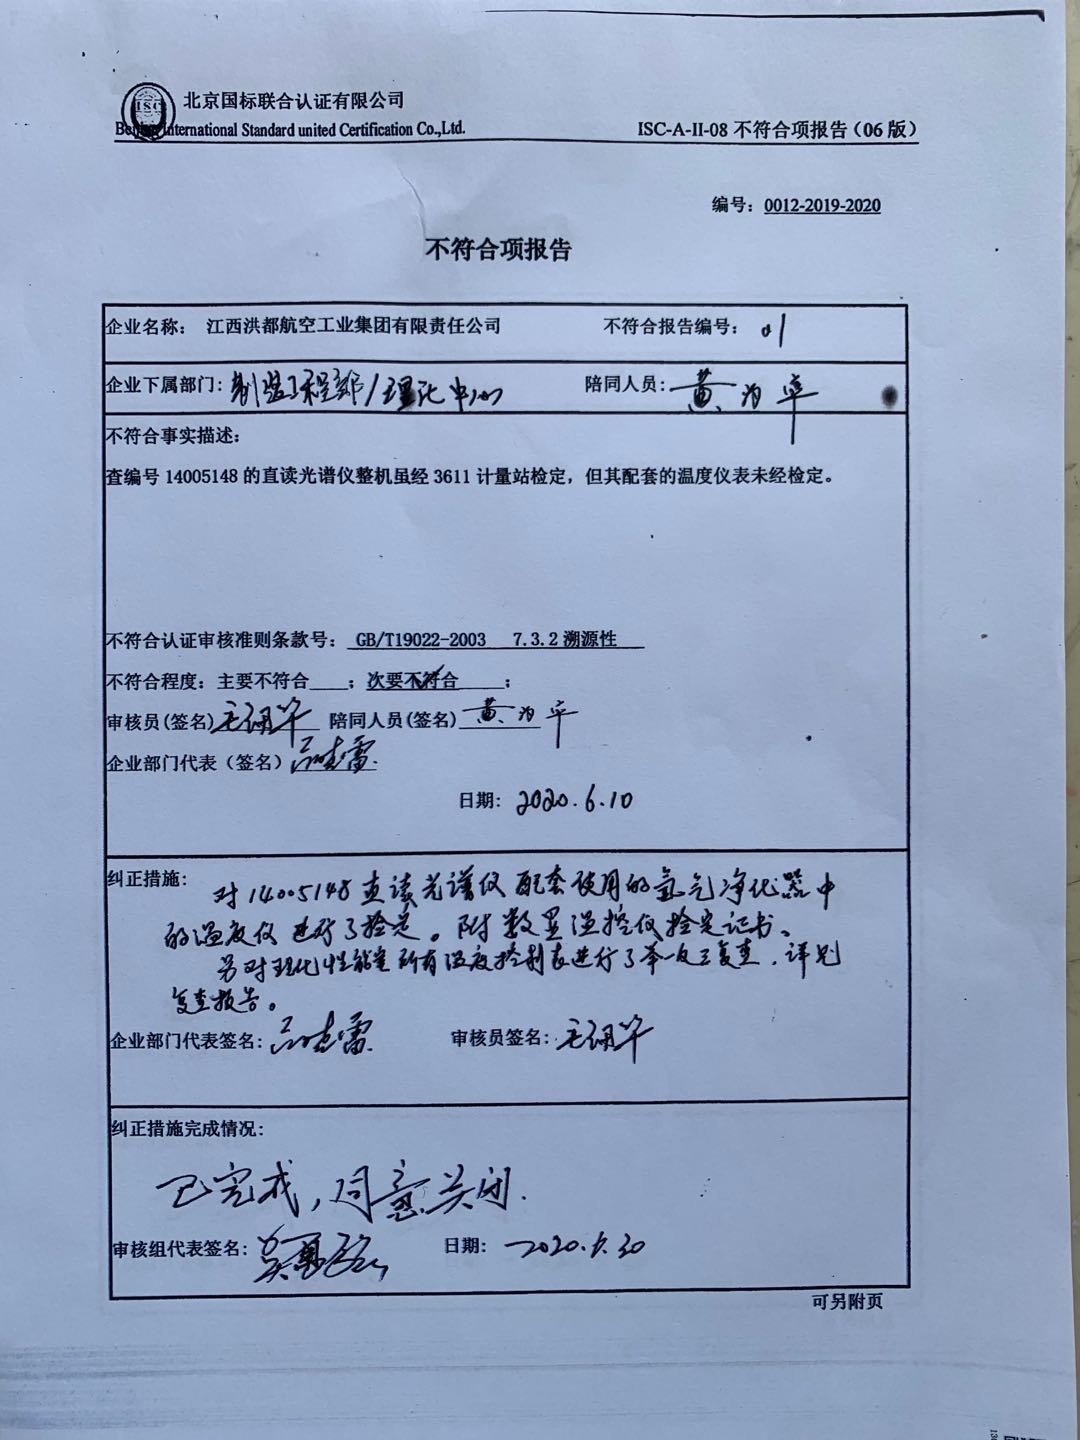 ISC
北京国标联合认证有限公司
Beijing International Standard united Certification Co.,Ltd.
ISC-A-II-08 不符合项报告(06 版)
编号: 0012-2019-2020
不符合项报告
企业名称: 江西洪都航空工业集团有限责任公司 不符合报告编号: 01
企业下属部门: 制造工程部/理化中心 陪同人员: 黄为卓
不符合事实描述:
查编号 14005148 的直读光谱仪整机虽经 3611 计量站检定, 但其配套的温度仪表未经检定。
不符合认证审核准则条款号: GB/T19022-2003 7.3.2 溯源性
不符合程度: 主要不符合 ; 次要不符合 ;
审核员(签名) 陪同人员(签名) 黄为卓
企业部门代表 (签名)
日期: 2020.6.10
纠正措施: 对14005148直读光谱仪配套使用的氩气净化器中
的温度仪进行了检定。附数显温控仪检定证书。
另对理化性能室所有温度控制表进行了举一反三复查,详见
复查报告。
企业部门代表签名: 审核员签名:
纠正措施完成情况:
已完成,同意关闭.
审核组代表签名: 日期: 2020.6.30
可另附页